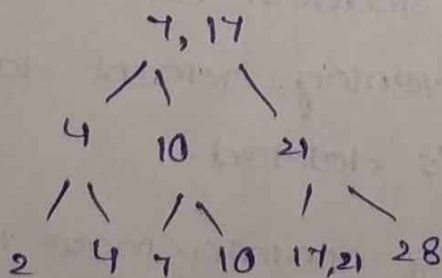 7, 17
4 10 21
2 4 7 10 17,21 28